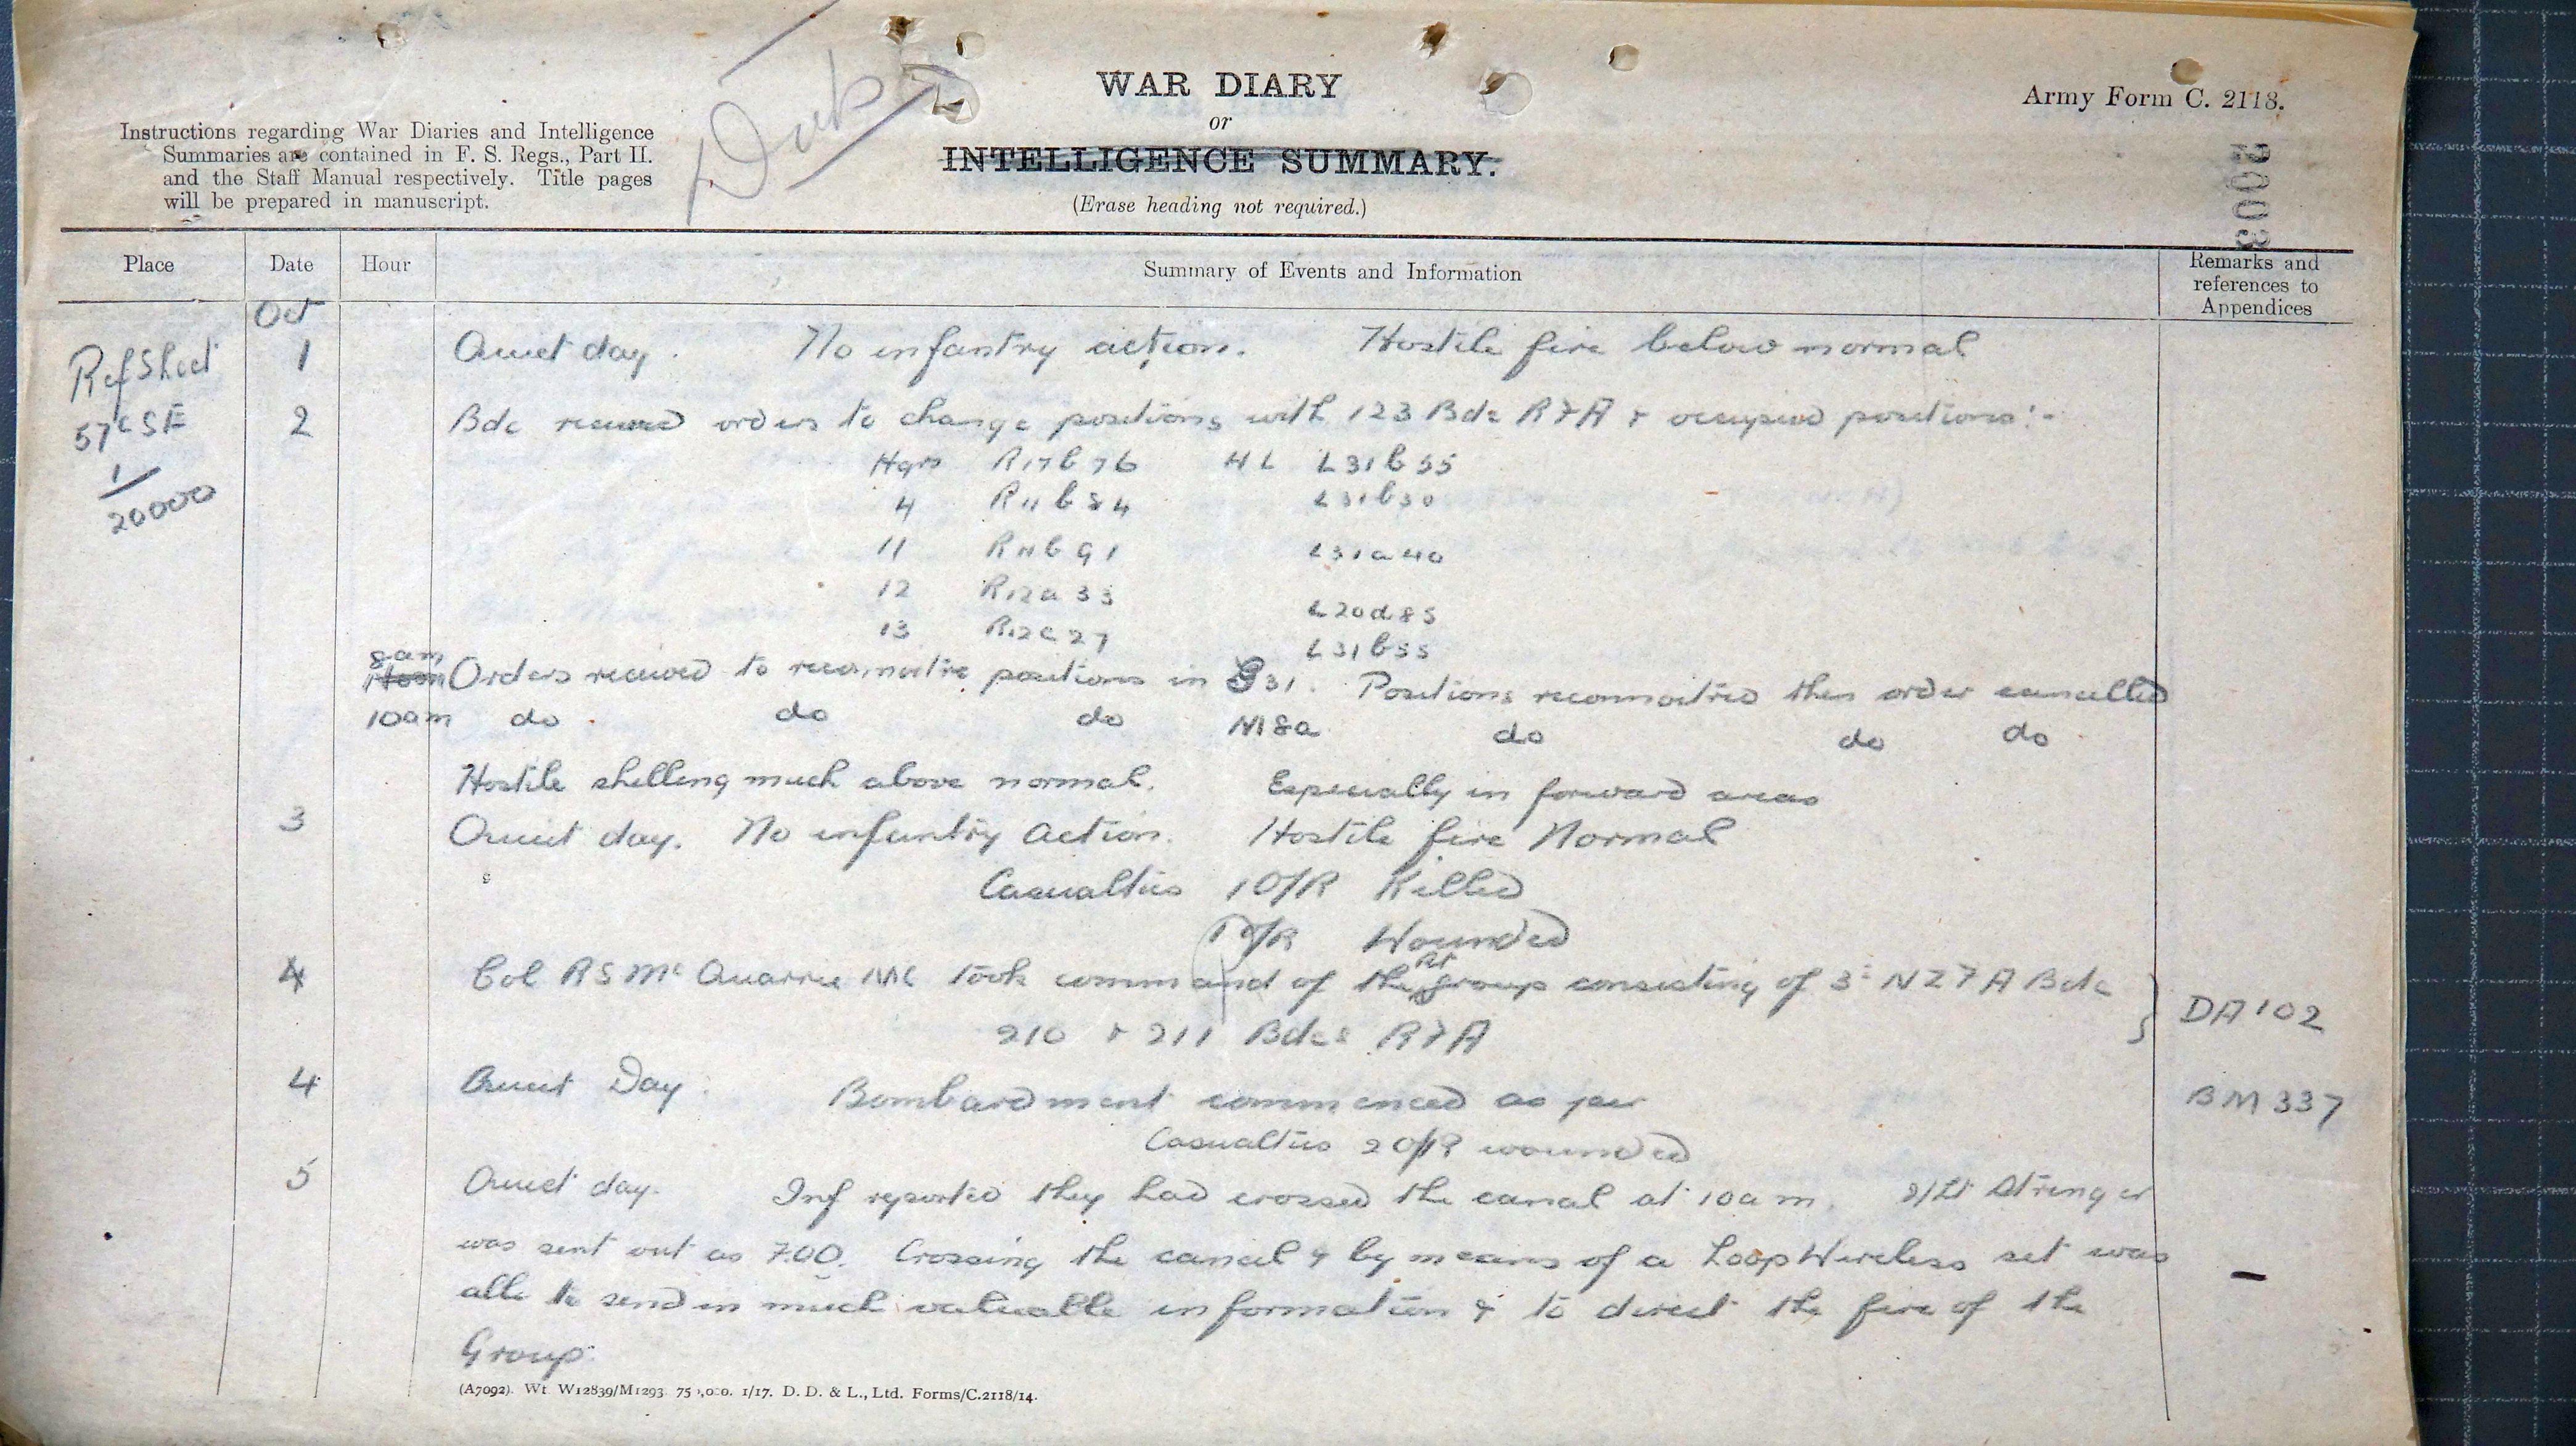 WAR DIARY
or
INTELLIGENCE SUMMARY.
(Erase heading not required.)
Army Form C. 2118.
Instructions regarding War Diaries and Intelligence
Summaries are contained in F. S. Regs., Part II.
and the Staff Manual respectively. Title pages
will be prepared in manuscript.
2003
Place Date Hour Summary of Events and Information Remarks and references to Appendices
Oct
Ref Sheet
57c SE
1/20000
1 Quiet day. No infantry action. Hostile fire below normal
2 Bde received orders to change positions with 123 Bde RFA & occupied positions:-
Hqrs R17b76 HL L31b55
4 R11b84 L31b30
11 R11b91 L31a40
12 R12a33 L20d85
13 R12c27 L31b55
8am Orders received to reconnoitre positions in G31. Positions reconnoitred then order cancelled
10am do do do M18a do do do
Hostile shelling much above normal. Especially in forward areas
3 Quiet day. No infantry action. Hostile fire Normal
Casualties 1 O/R Killed
1 O/R Wounded
4 Col RS McQuarrie MC took command of the Rt group consisting of 3rd NZFA Bde
210 & 211 Bdes RFA DA102
4 Quiet Day. Bombardment commenced as per BM 337
Casualties 2 O/R wounded
5 Quiet day. Inf reported they had crossed the canal at 10am. 2/Lt Stringer
was sent out as F.O.O. Crossing the canal & by means of a Loop Wireless set was
able to send in much valuable information & to direct the fire of the
Group.
(A7092). Wt. W12839/M1293. 75 ,000. 1/17. D. D. & L., Ltd. Forms/C.2118/14.